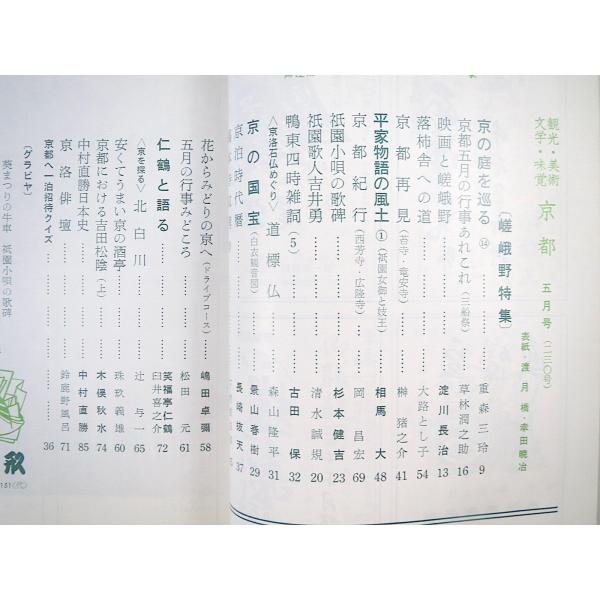 観光・美術
文学・味覚
京都
五月号(二三〇号)
表紙・渡月橋・幸田暁冶
〔嵯峨野特集〕
京の庭を巡る ⑭ …… 重森三玲 9
京都五月の行事あれこれ(三船祭) …… 草林潤之助 16
映画と嵯峨野 …… 淀川長治 13
落柿舎への道 …… 大路とし子 54
京都再見(苔寺・竜安寺) …… 榊猪之介 41
平家物語の風土 ①(祇園女御と妓王) …… 相馬大 48
京都紀行(西芳寺・広隆寺) …… 岡昌宏 69
祇園小唄の歌碑 …… 杉本健吉 23
祇園歌人吉井勇 …… 清水誠規 20
鴨東四時雑詞(5) …… 古田保 32
〈京洛石仏めぐり〉道標仏 …… 森山隆平 31
京の国宝(白衣観音図) …… 景山春樹 29
京泊時代暦 …… 長崎抜天 37
花からみどりの京へ(ドライブコース) …… 嶋田卓彌 58
五月の行事みどころ …… 松田元 61
仁鶴と語る …… 笑福亭仁鶴 臼井喜之介 72
〈京を探る〉北白川 …… 辻与一 65
安くてうまい京の酒亭 …… 珠玖義雄 60
京都における吉田松陰(上) …… 木俣秋水 74
中村直勝日本史 …… 中村直勝 85
京洛俳壇 …… 鈴鹿野風呂 71
京都へ一泊招待クイズ …… 36
〔グラビヤ〕
葵まつりの牛車 祇園小唄の歌碑